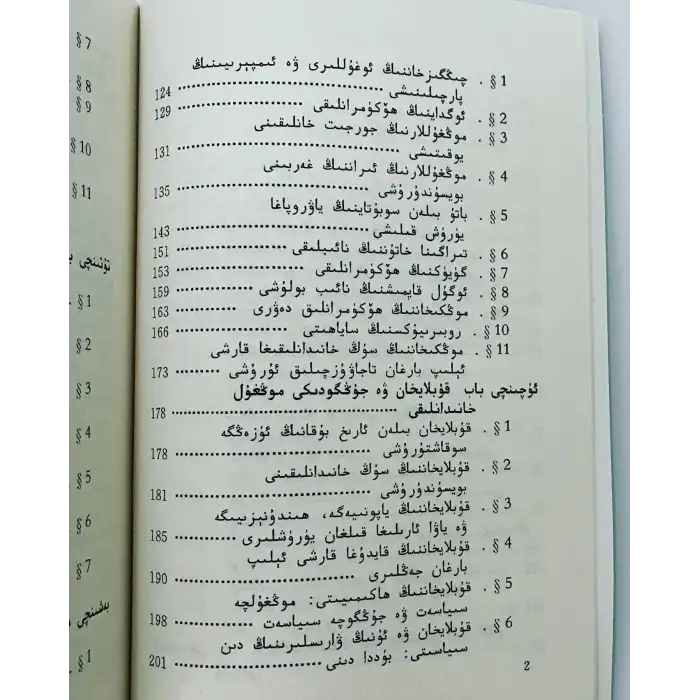 § 1 . چىڭگىزخاننىڭ ئوغۇللىرى ۋە ئىمپېرىيىنىڭ
پارچىلىنىشى 124
§ 2 . ئوگداينىڭ ھۆكۈمرانلىقى 129
§ 3 . موڭغۇللارنىڭ جورجىت خانلىقىنى
يوقىتىشى 131
§ 4 . موڭغۇللارنىڭ ئىراننىڭ غەربىنى
بويسۇندۇرۇشى 135
§ 5 . باتۇ بىلەن سوبۇتاينىڭ ياۋروپاغا
يۈرۈش قىلىشى 143
§ 6 . تىراگىنا خاتۇننىڭ نائىبلىقى 151
§ 7 . گۈيۈكنىڭ ھۆكۈمرانلىقى 153
§ 8 . ئوگۇل قايمىشنىڭ نائىب بولۇشى 159
§ 9 . موڭكىخاننىڭ ھۆكۈمرانلىق دەۋرى 163
§ 10 . روبىرىيۇكىسنىڭ ساياھىتى 166
§ 11 . موڭكىخاننىڭ سۇڭ خانىدانلىقىغا قارشى
ئېلىپ بارغان تاجاۋۇزچىلىق ئۇرۇشى 173
ئۈچىنچى باب قۇبلايخان ۋە جۇڭگودىكى موڭغۇل
خانىدانلىقى 178
§ 1 . قۇبلايخان بىلەن ئارىخ بۇقانىڭ ئۈزەڭگە
سوقاشتۇرۇشى 178
§ 2 . قۇبلايخاننىڭ سۇڭ خانىدانلىقىنى
بويسۇندۇرۇشى 181
§ 3 . قۇبلايخاننىڭ ياپونىيەگە، ھىندۇنېزىيىگە
ۋە ياۋا ئارىلىغا قىلغان يۈرۈشلىرى 185
§ 4 . قۇبلايخاننىڭ قايدۇغا قارشى ئېلىپ
بارغان جەڭلىرى 190
§ 5 . قۇبلايخاننىڭ ھاكىمىيىتى: موڭغۇلچە
سىياسەت ۋە جۇڭگوچە سىياسەت 198
§ 6 . قۇبلايخان ۋە ئۇنىڭ ۋارىسلىرىنىڭ دىن
سىياسىتى: بۇددا دىنى 201
2
§ 7
§ 8
§ 9
§ 10
§ 11
تۆتىنچى ب
§ 1
§ 2
§ 3
§ 4
§ 5
§ 6
§ 7
بەشىنچى
§ 1